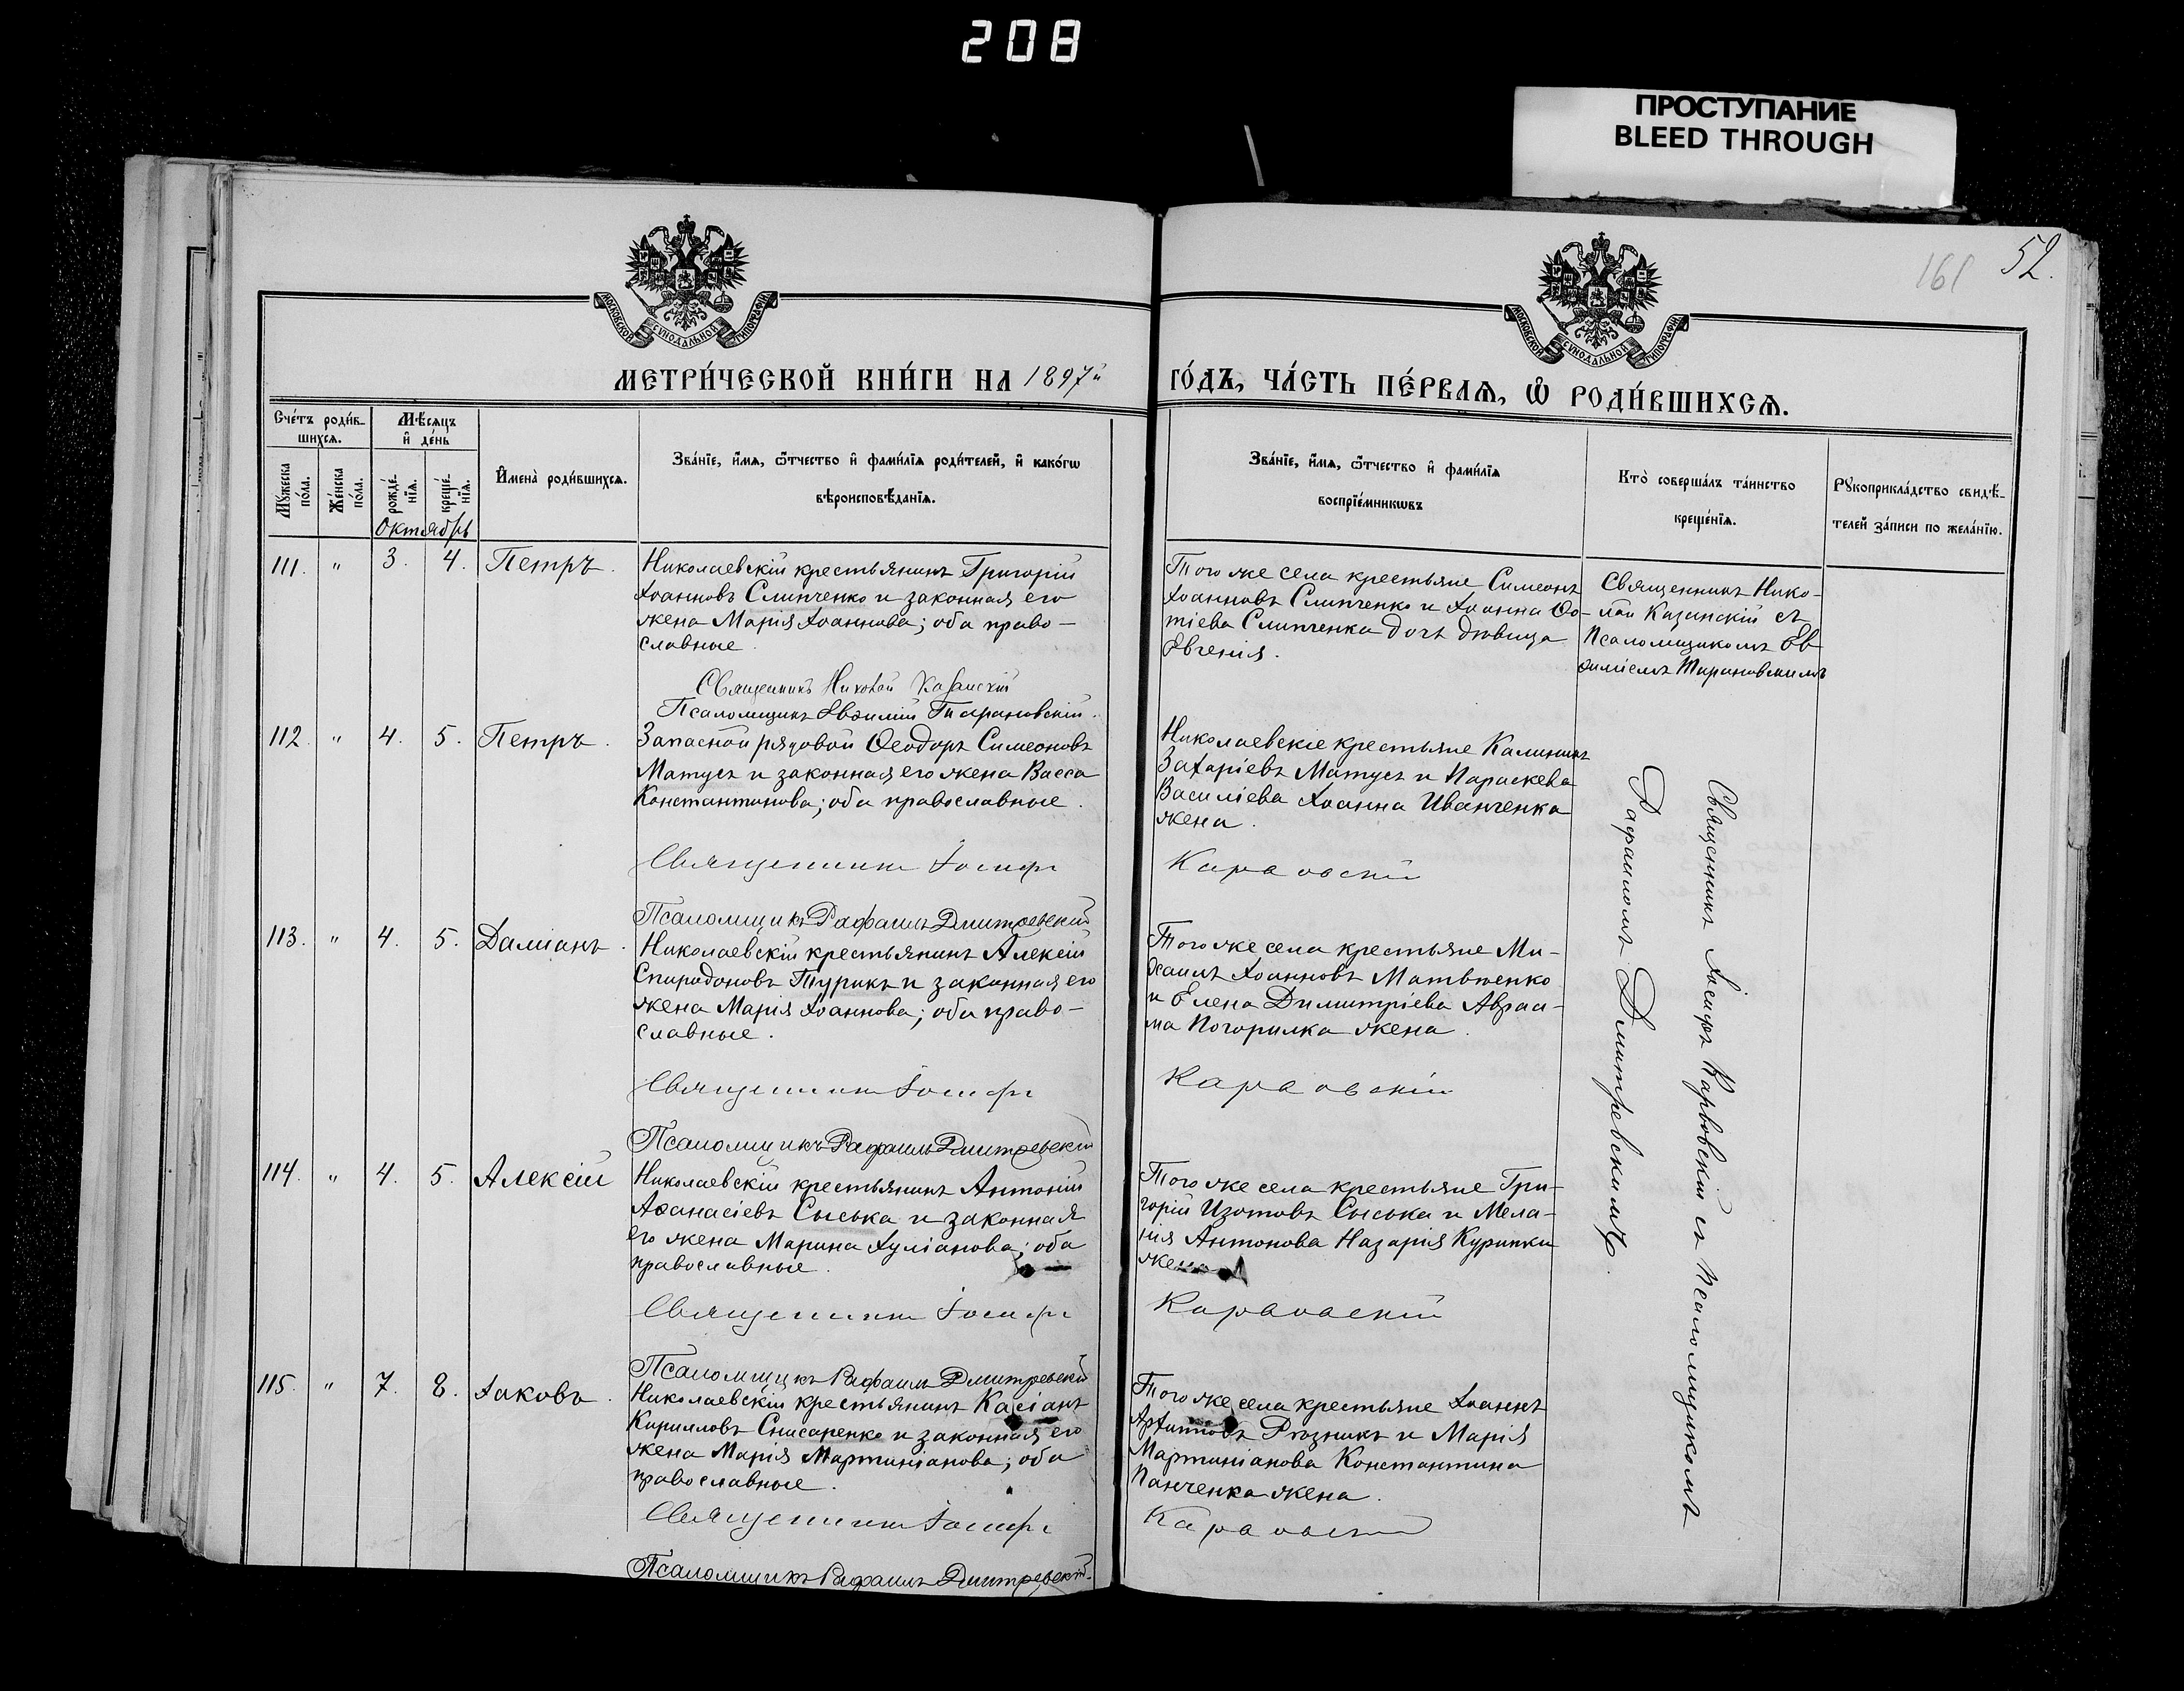 208
ПРОСТУПАНИЕ
BLEED THROUGH
161
52.
МОСКОВСКОЙ СѴНОДАЛЬНОЙ ТИПОГРАФІИ
МОСКОВСКОЙ СѴНОДАЛЬНОЙ ТИПОГРАФІИ
МЕТРИ́ЧЕСКОЙ КНИ́ГИ НА 1897й
ГО́ДЪ, ЧА́СТЬ ПЕ́РВАѦ, Ѽ РОДИ́ВШИХСѦ.
Сче́тъ роди́в-
шихсѧ.
Мѣ́сѧцъ
и҆ де́нь
Мꙋ́жеска
по́ла.
Же́нска
по́ла.
рожде́-
нїѧ.
креще́-
нїѧ.
И҆мена̀ роди́вшихсѧ.
Зва́нїе, и҆́мѧ, ѻ҆́тчество и҆ фами́лїѧ роди́телей, и҆ како́гѡ
вѣроисповѣ́данїѧ.
Зва́нїе, и҆́мѧ, ѻ҆́тчество и҆ фами́лїѧ
воспрїе́мникѡвъ
Кто̀ соверша́лъ та́инство
креще́нїѧ.
Рꙋкоприкла́дство свидѣ́-
телей за́писи по жела́нїю.
Октябрь
111. " 3. 4. Петръ.
Николаевскій крестьянинъ Григорій
Іоанновъ Слипченко и законная его
жена Марія Іоаннова; оба право-
славные.
Священникъ Николай Казанскій
Псаломщикъ Евѳимій Тарановскій.
Того же села крестьяне Симеонъ
Іоанновъ Слипченко и Іоанна Ѳо-
тіева Слипченка дочь дѣвица
Евгенія.
Священникъ Нико-
лай Казанскій съ
Псаломщикомъ Ев-
ѳиміемъ Тарановскимъ
112. " 4. 5. Петръ.
Запасной рядовой Ѳеодоръ Симеоновъ
Матусъ и законная его жена Васса
Константинова; оба православные.
Священникъ Іосифъ
Псаломщикъ Рафаилъ Дмитревскій
Николаевскіе крестьяне Калинникъ
Захаріевъ Матусъ и Параскева
Василіева Іоанна Иванченка
жена.
Карвовскій
113. " 4. 5. Даміанъ.
Николаевскій крестьянинъ Алексій
Спиридоновъ Турикъ и законная его
жена Марія Іоаннова; оба право-
славные.
Священникъ Іосифъ
Псаломщикъ Рафаилъ Дмитревскій
Того же села крестьяне Ми-
хаилъ Іоанновъ Матвѣенко
и Елена Димитріева Авраа-
ма Погорилка жена.
Карвовскій
114. " 4. 5. Алексій
Николаевскій крестьянинъ Антоній
Аѳанасіевъ Сыська и законная
его жена Марина Іуліанова; оба
православные.
Священникъ Іосифъ
Псаломщикъ Рафаилъ Дмитревскій
Того же села крестьяне Гри-
горій Изотовъ Сыська и Мела-
нія Антонова Назарія Курипки
жена
Карвовскій
115. " 7. 8. Іаковъ.
Николаевскій крестьянинъ Касіанъ
Кирилловъ Снисаренко и законная его
жена Марія Мартиніанова; оба
православные.
Священникъ Іосифъ
Псаломщикъ Рафаилъ Дмитревскій.
Того же села крестьяне Іоаннъ
Архиповъ Рѣзникъ и Марія
Мартиніанова Константина
Панченка жена.
Карвовскій
Священникъ Іосифъ Карвовскій съ Псаломщикомъ
Рафаиломъ Дмитревскимъ.